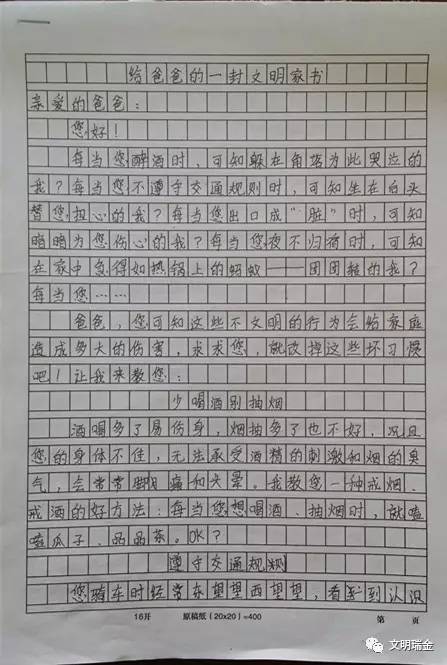 给爸爸的一封文明家书
亲爱的爸爸：
您好！
每当您醉酒时，可知躲在角落为此哭泣的
我？每当您不遵守交通规则时，可知坐在后头
替您担心的我？每当您出口成“脏”时，可知
暗暗为您伤心的我？每当您夜不归宿时，可知
在家中急得如热锅上的蚂蚁——团团转的我？
每当您……
爸爸，您可知这些不文明的行为会给家庭
造成多大的伤害，求求您，就改掉这些坏习惯
吧！让我来教您：
少喝酒别抽烟
酒喝多了易伤身，烟抽多了也不好，况且
您的身体不佳，无法承受酒精的刺激和烟的臭
气，会常常脚痛和头晕。我教您一种戒烟、
戒酒的好方法：每当您想喝酒、抽烟时，就嗑
嗑瓜子、品品茶。OK？
遵守交通规则
您骑车时经常东望望西望望，看到认识
16开 原稿纸（20×20）=400 第 页
文明瑞金